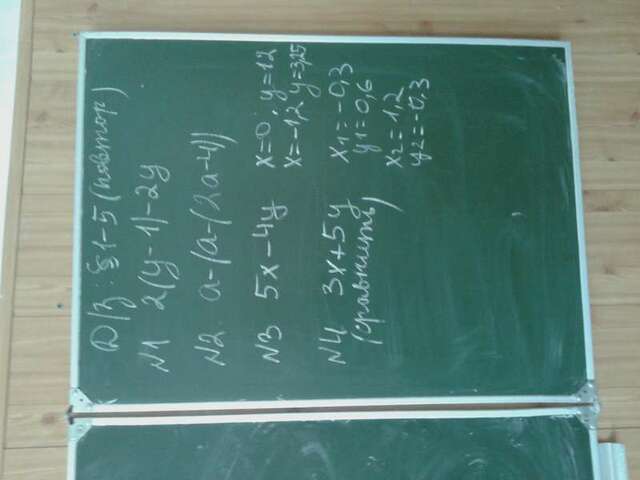 Д/з: § 1-5 (повтор)
№1 2(y-1)-2y
№2 a-(a-(2a-4))
№3 5x-4y x=0; y=12
x=-1,2 y=3,25
№4 3x+5y x1=-0,3
(сравнить) y1=0,6
x2=1,2
y2=-0,3